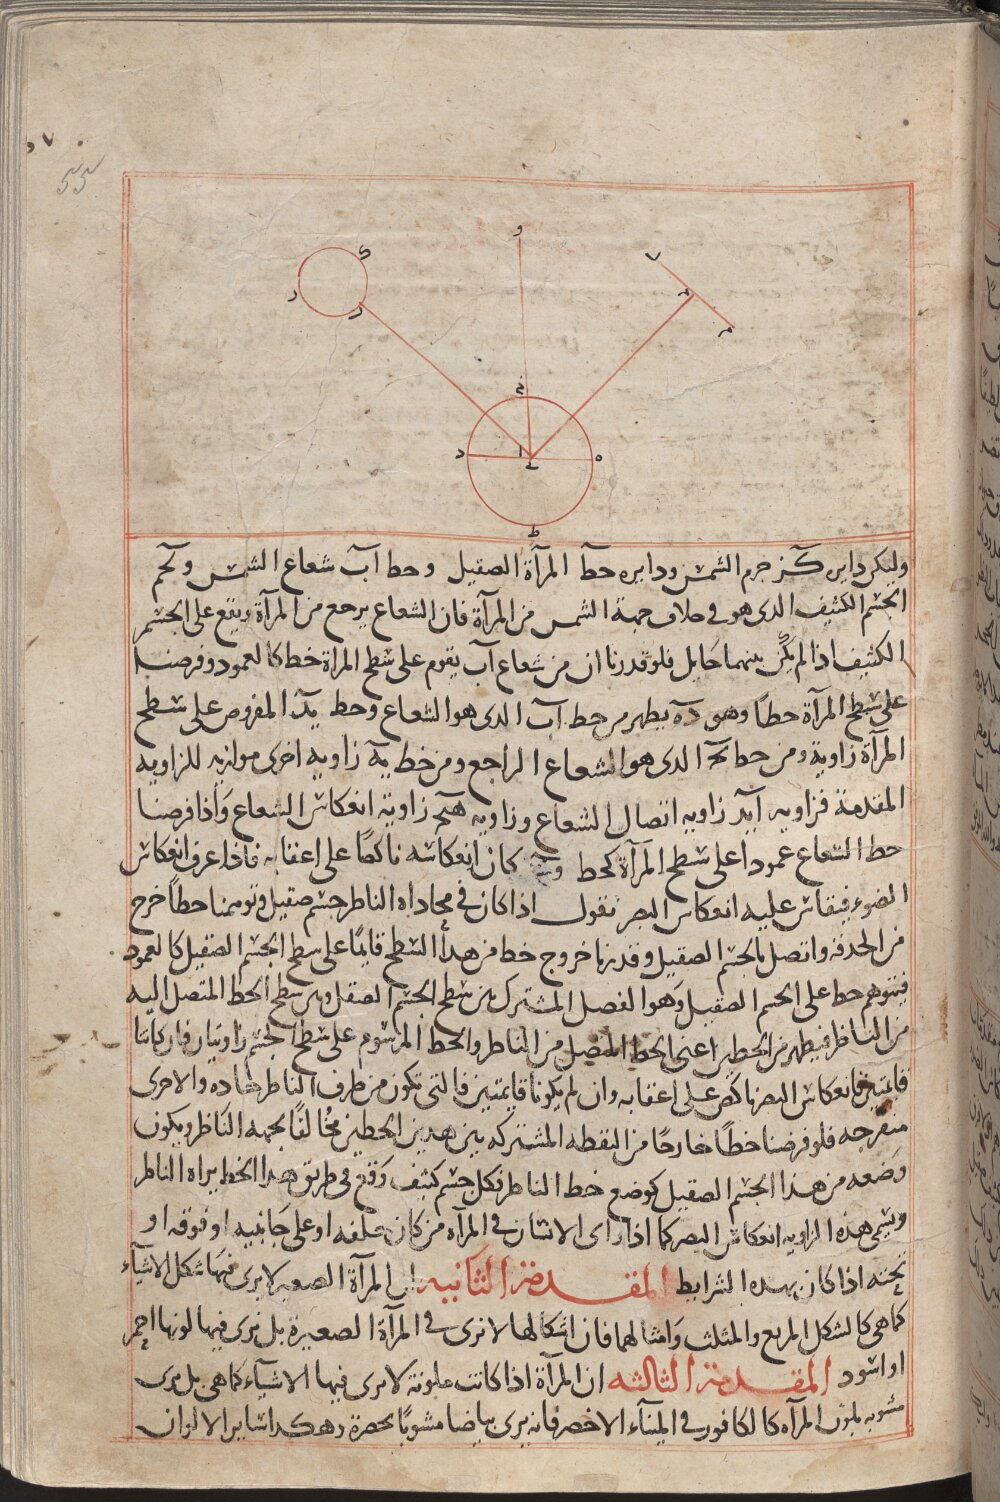 55
و
ح
ك
ر
د
ح
م
ز
د
ا
ب
ه
ط
وليكن دايره كز جرم الشمس ودايره حط المرآة الصقيل وحط اب شعاع الشمس وحم
الجسم الكثيف الدى هو فى خلاف جهة الشمس من المرآة فان الشعاع يرجع من المرآة ويقع على الجسم
الكثيف اذا لم يكن بينهما حايل فلو قدرنا ان من شعاع اب يقوم على سطح المرآة خط كالعمود وفرضنا
على سطح المرآة حطاً وهو ده يطهر من حط اب الدى هو الشعاع وحط بد المفروض على سطح
المرآة زاوية ومن حط بح الدى هو الشعاع الراجع ومن خط به زاويه اخرى موازيه للزاويه
المقدمة فزاويه ابد زاويه اتصال الشعاع وزاويه هبح زاوية انعكاس الشعاع واذا فرضنا
حط الشعاع عموداً على سطح المرآة كحط كان انعكاسه ناكصاً على اعقابه فاذا عرف انعكاس
الضوء فيقاس عليه انعكاس البصر نقول اذا كان فى محاداه الناطر جسم صقيل وتوهمنا حطاً خرج
من الحدقه واتصل بالجسم الصقيل وقدرنا خروج خط من هدا السطح قايمًا على سطح الجسم الصقيل كالعمود
فيتوهم حط على الجسم الصقيل وهو الفصل المشترك بين سطح الجسم الصقيل وبين سطح الحط المتصل اليه
من الناظر فيطهر من الحطين اعنى الحط المتصل من الناظر والحط المرسوم على سطح الجسم زاويتان فان كانتا
قايمتين فانعكاس البصر ناكص على اعقابه وان لم يكونا قايمتين فالتى تكون من طرف الناطر حاده والاحرى
منفرجه فلو فرضنا خطاً خارجًا من النقطه المشتركه بين هدين الحطين مخالفًا لجهه الناظر ويكون
وضعه من هدا الجسم الصقيل كوضع خط الناطر فكل جسم كثيف وقع فى طريق هدا الخط يراه الناطر
ويسمى هذه الزاويه انعكاس البصر كما اذا راى الانسان فى المرآه من كان خلفه او على جانبيه او فوقه او
تحته اذا كان بهده الشرايط المقدمة الثانيه ان المرآة الصغيره لا يرى فيها شكل الاشيآء
كما هى كالشكل المربع والمثلث وامثالهما فان اشكالها لا ترى فى المرآة الصغيرة بل ترى فيها لونها احمر
او اسود المقدمة الثالثه ان المرآة اذا كانت ملونة لا يرى فيها الاشيآء كما هى بل يرى
مشوبه بلون المرآه كالكافور فى المينآء الاخضر فانه يرى بياضا مشوبًا بخضرة وهكدا ساير الالوان